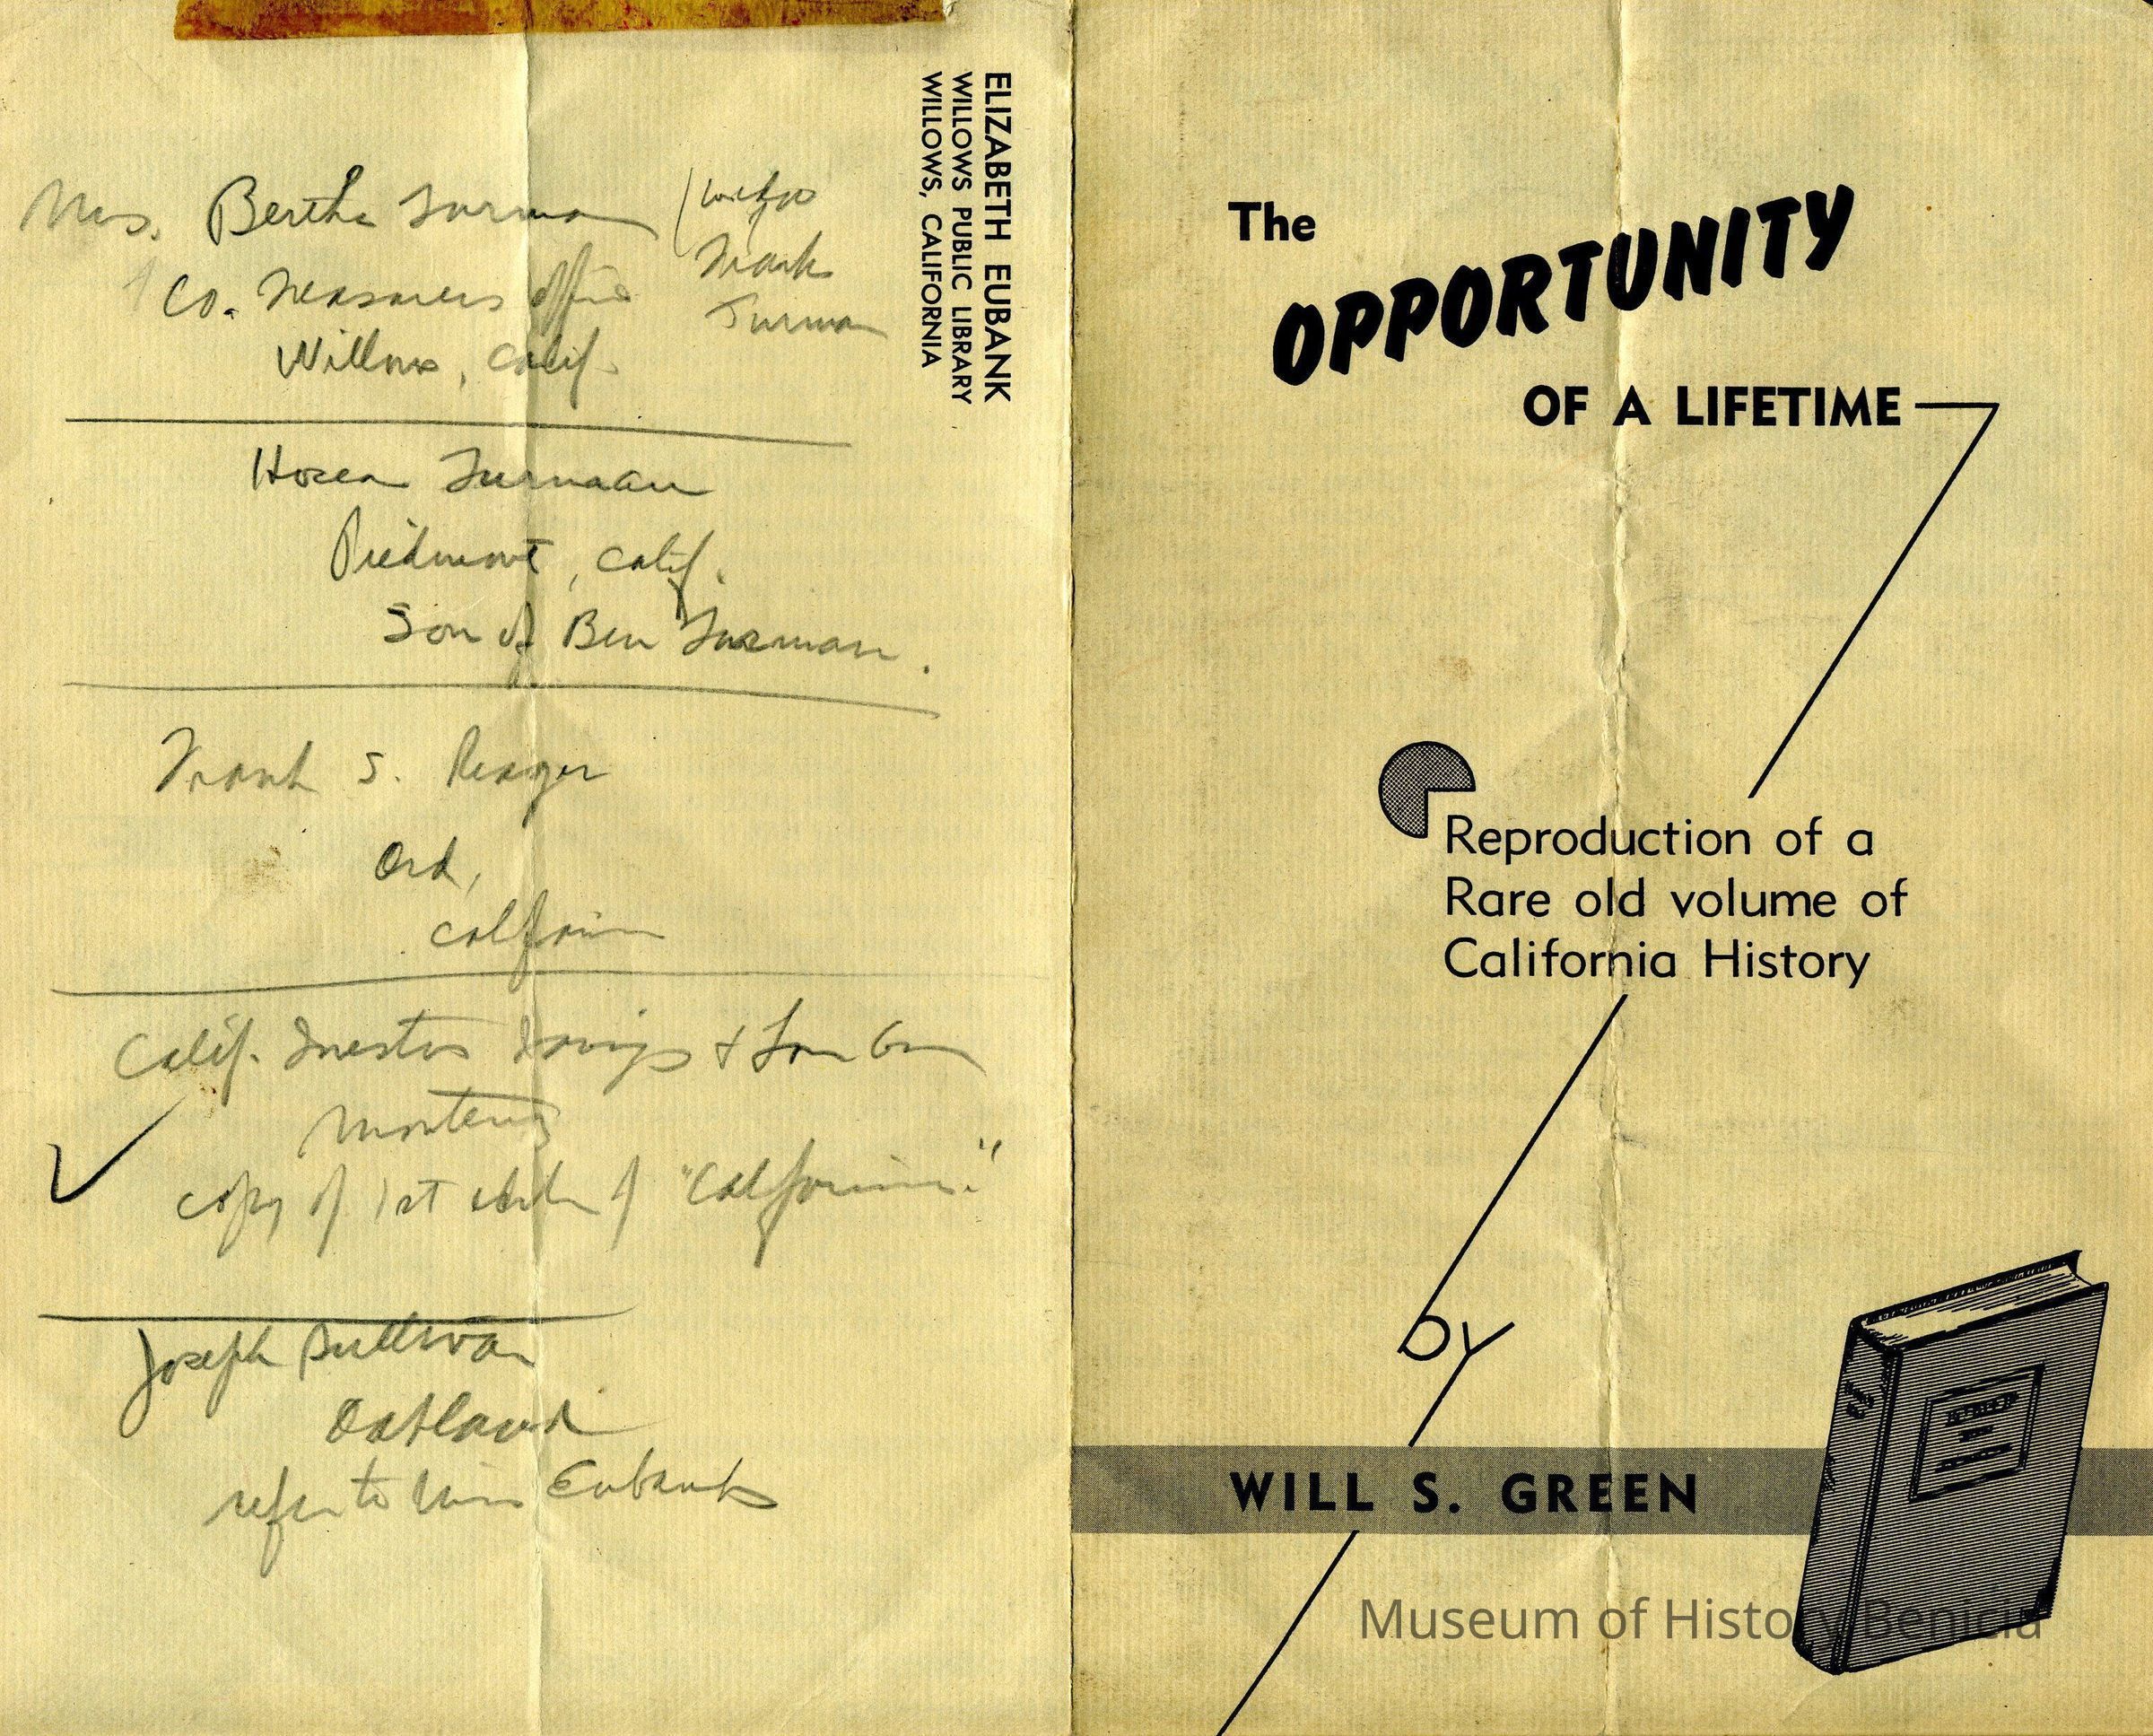 Mrs. Bertha Turman (wife of
Frank
Turman
Co. Treasurers office
Willows, Calif.
Hosea Turman
Piedmont, Calif.
Son of Ben Turman.
Frank S. Reager
Ord,
California
Calif. Investors Savings & Loan
Monterey
copy of 1st of "California."
Joseph Sullivan
Oakland
refer to Miss Eubank
ELIZABETH EUBANK
WILLOWS PUBLIC LIBRARY
WILLOWS, CALIFORNIA
The
OPPORTUNITY
OF A LIFETIME
Reproduction of a
Rare old volume of
California History
by
WILL S. GREEN
Museum of History Benicia